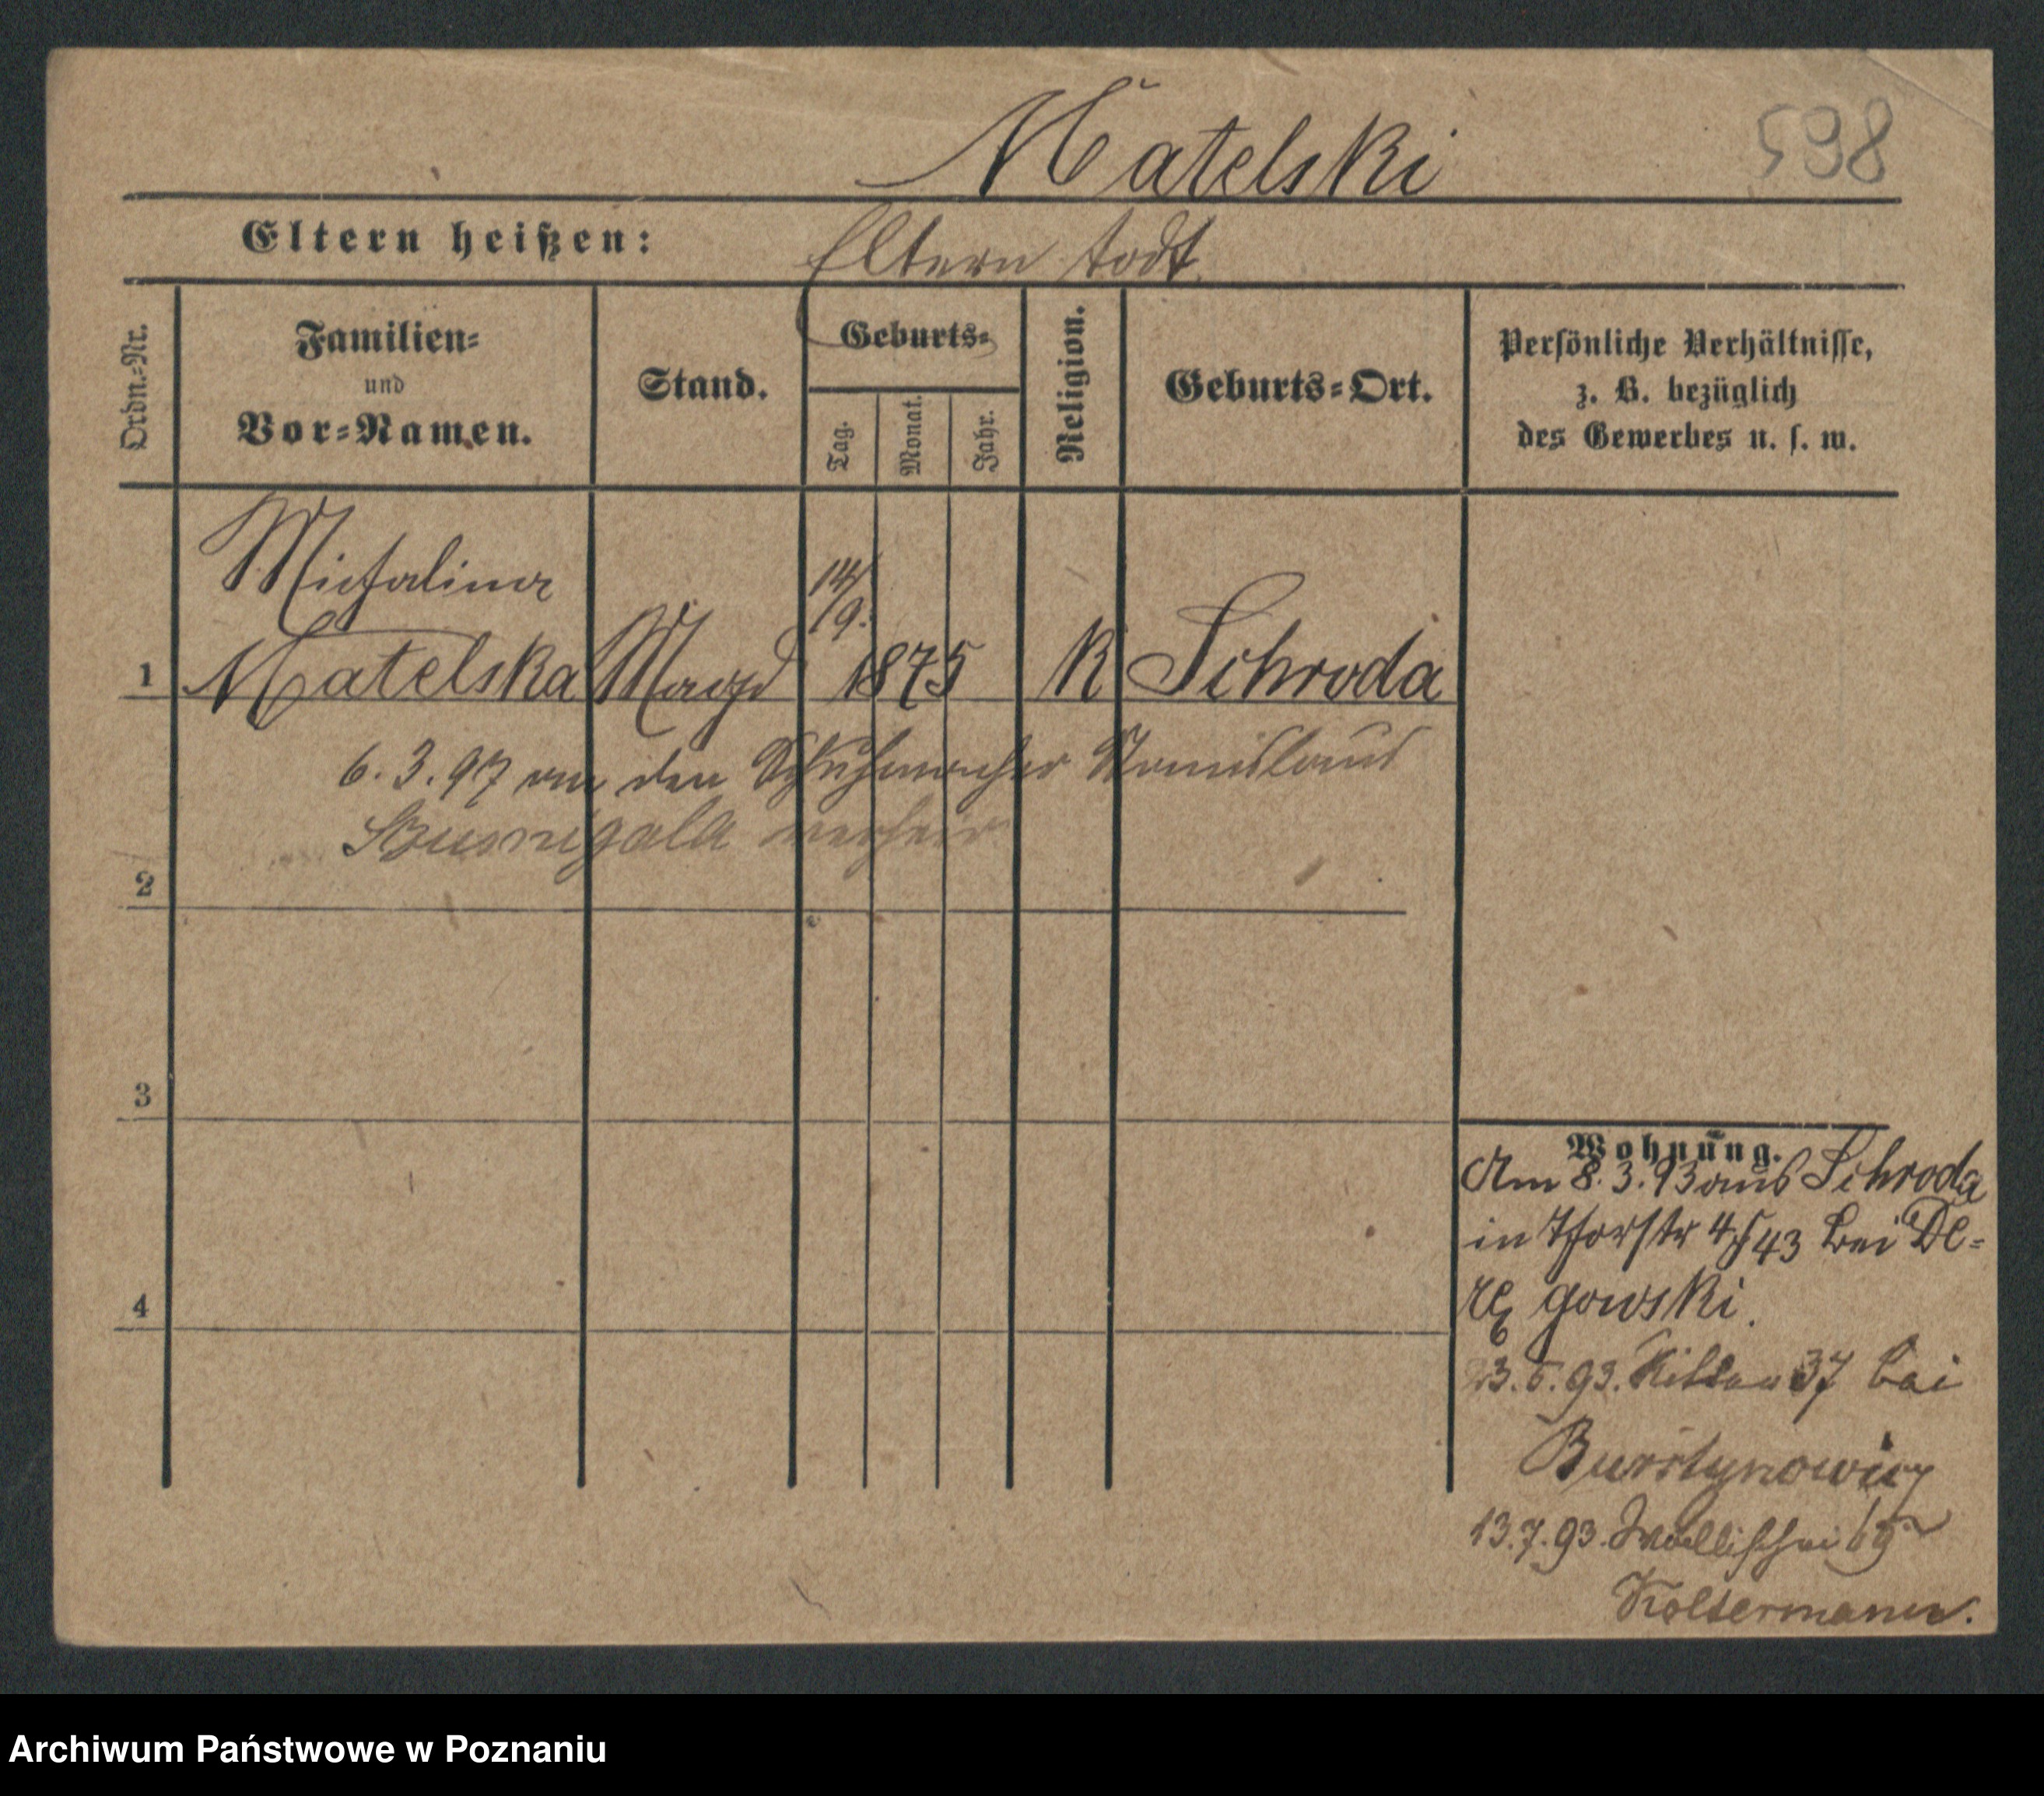 Matelski
598
Eltern heißen: Eltern todt.
Ordn.-Nr.
Familien-
und
Vor-Namen.
Stand.
Geburts-
Tag.
Monat.
Jahr.
Religion.
Geburts-Ort.
Persönliche Verhältnisse,
z. B. bezüglich
des Gewerbes u. s. w.
Michalina
14/9.
1 Matelska Magd 1875 K Schroda
6.3.97 an den Schuhmacher Stanislaus
verheir
2
3
4
Wohnung.
Am 8.3.93 aus Schroda
in Thorstr 4 43 bei De-
gowski.
93. 37 bei
Burstynowicz
13.7.93. Wallischei
Koltermann.
Archiwum Państwowe w Poznaniu